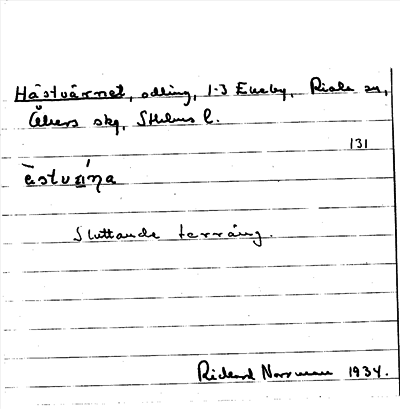 Hästvärnet, odling, 1-3 Eneby, Riala sn,
Åkers skg, Sthlms l.
131
Sluttande terräng.
Rickard Norrman 1934.